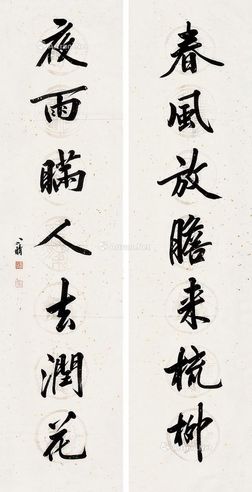 春風放膽来梳柳
夜雨瞞人去潤花